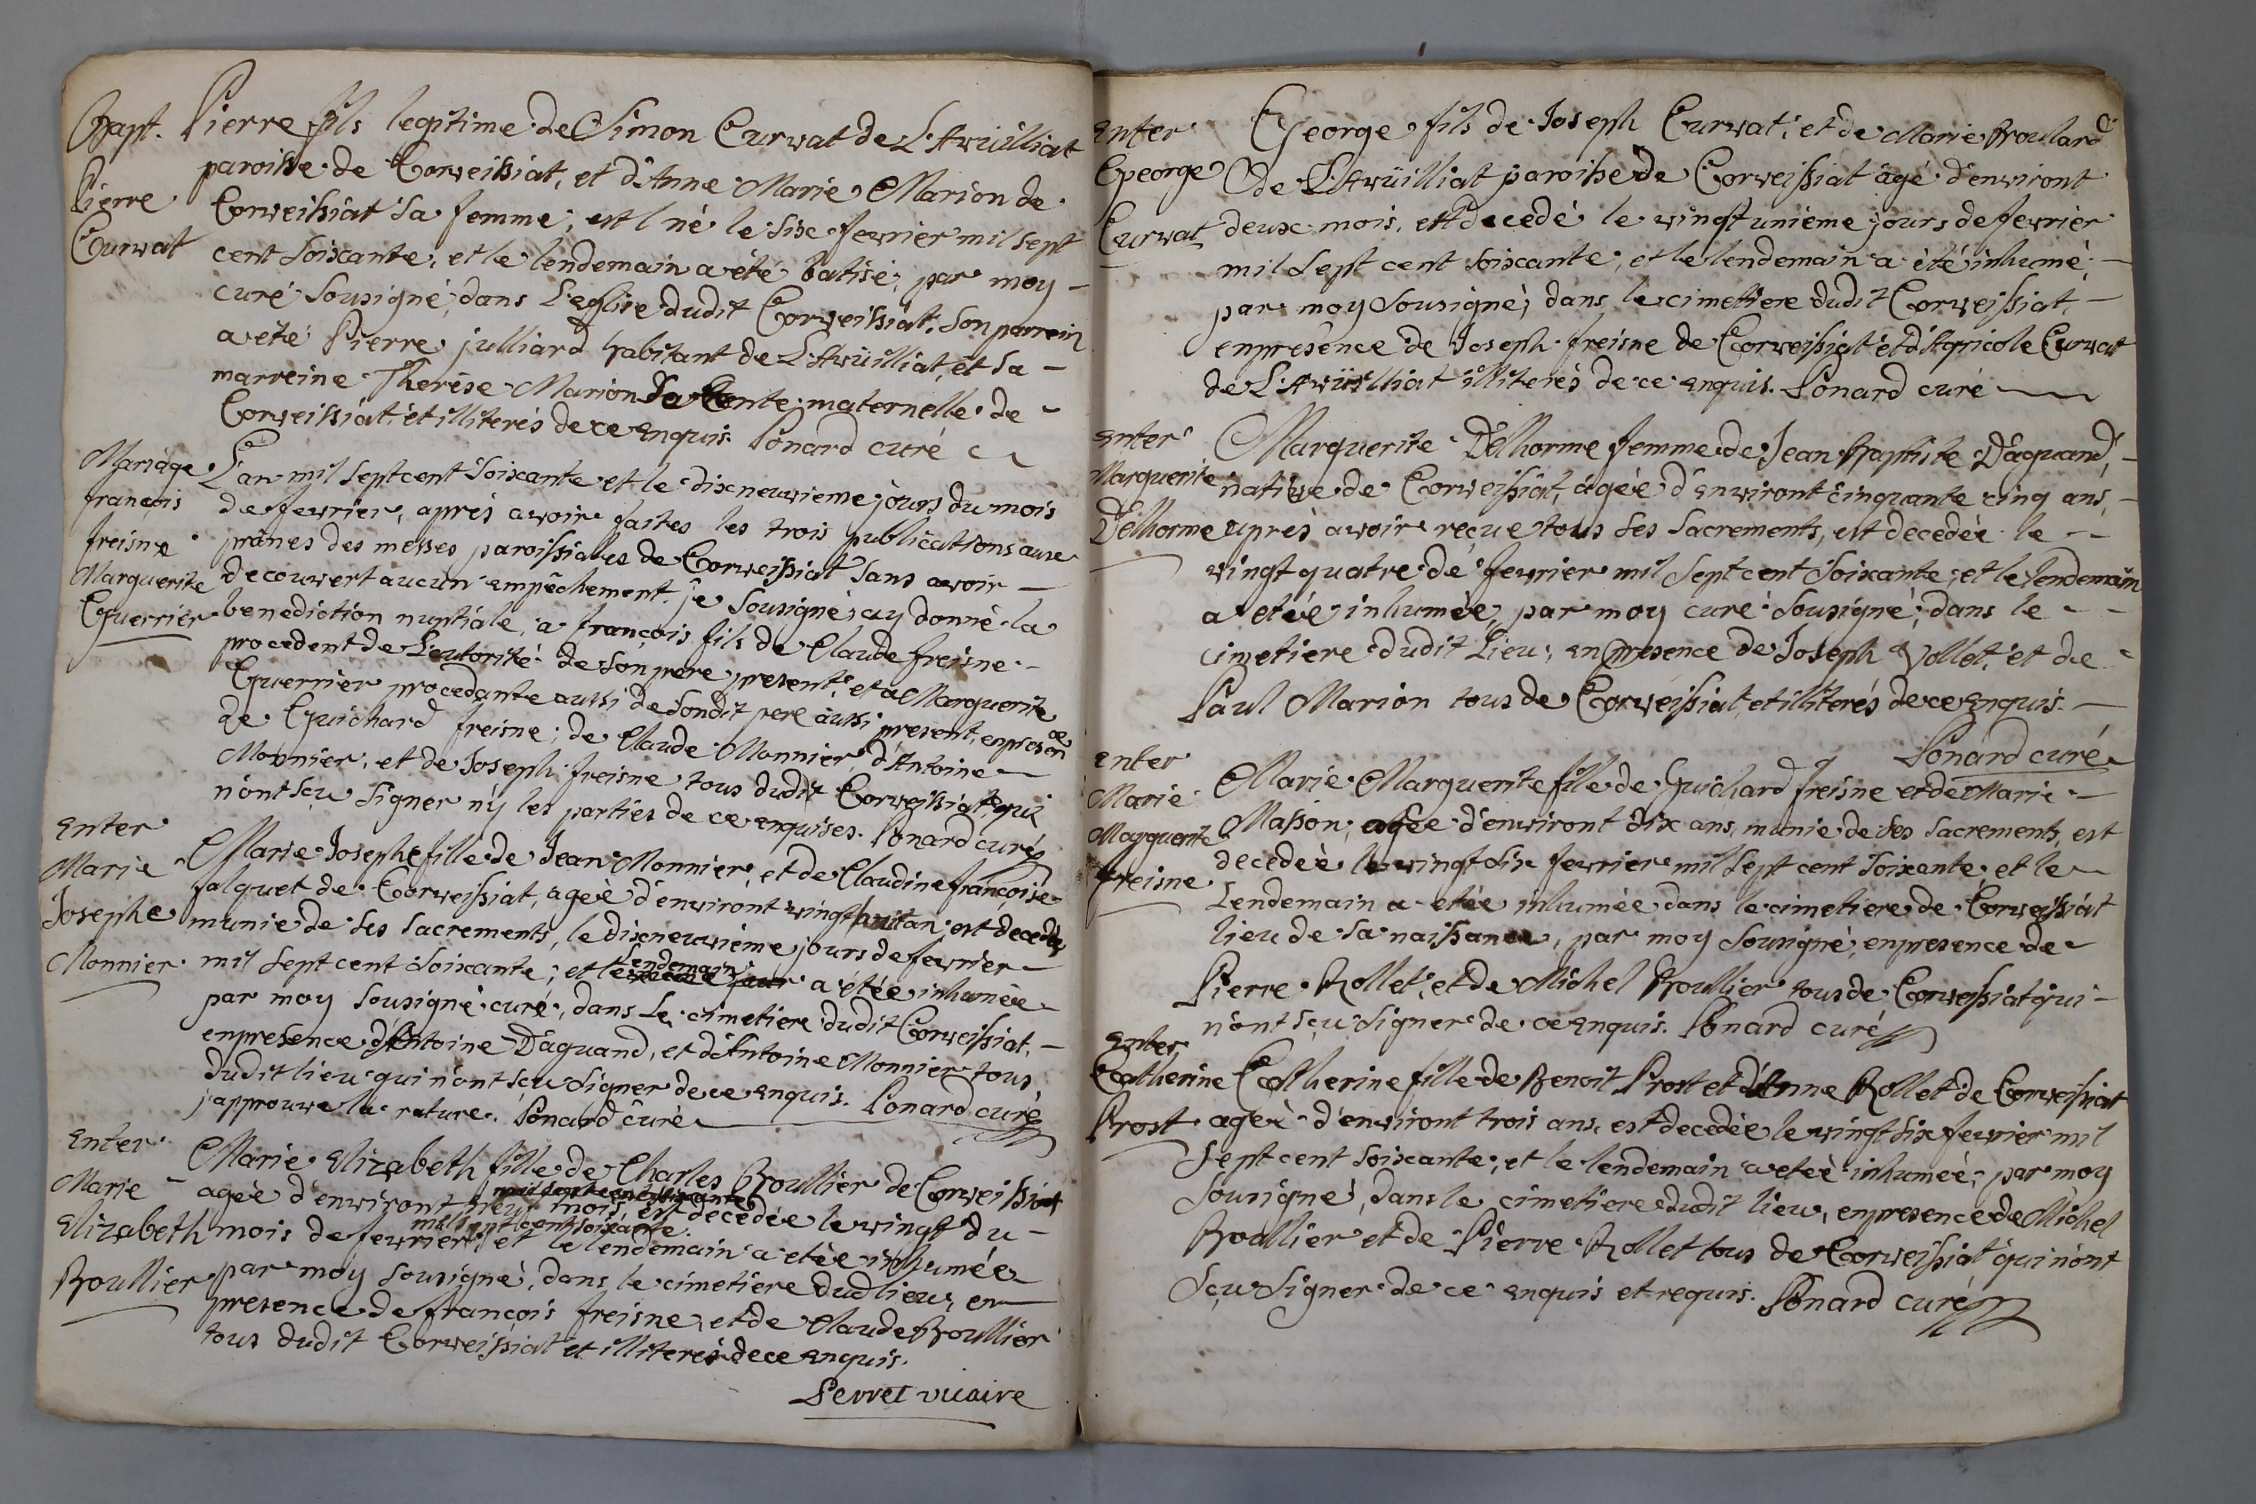 Bapt.
Pierre
Curvat
Pierre fils legitime de Simon Curvat de L'Avuilliat
paroisse de Corveissiat, et d'Anne Marie Marion de
Corveissiat sa femme, est né le six fevrier mil sept
cent soixante, et le lendemain a été batisé, par moy
curé sousigné, dans L'eglise dudit Corveissiat, son parrein
a eté Pierre julliard habitant de L'Avüilliat, et sa
marreine Therese Marion sa tente maternelle de
Corveissiat, et illiterés de ce enquis. Ponard curé
Mariage
françois
freisne
Marguerite
Guerrier
L'an mil sept cent soixante et le dixneuvieme jours du mois
de fevrier, aprés avoir faites les trois publications aux
prônes des messes paroissiales de Corveissiat sans avoir
decouvert aucun empêchement. je sousigné, ay donné la
benediction nuptiale, a françois fils de Claude freisne
procedent de L'autorité de son pere present, et a Marguerite
Guerrier procedante aussi de sondit pere aussi present, en presence
de Guichard freisne, de Claude Monnier d'Antoine
Monnier, et de Joseph freisne tous dudit Corveissiat, qui
n'ont sçu signer n'y les parties de ce enquises. Ponard curé
Enter
Marie
Josephe
Monnier
Marie Josephe fille de Jean Monnier, et de Claudine françoise
falquet de Corveissiat, ageé d'environt vingt huit an, est decedée
munie de ses sacrements, le dixneuvième jours de fevrier
mil sept cent soixante, et le lendemain a étée inhumée
par moy sousigné curé, dans Le cimetiere dudit Corveissiat,
en presence d'Antoine Daguand, et d'Antoine Monnier tous
dudit lieu qui n'ont sçu signer de ce enquis. Ponard curé
j'approuve la rature. Ponard curé
Enter
Marie
Elizabeth
Roullier
Marie Elizabeth fille de Charles Roullier de Corveissiat
ageé d'environt neuf mois, est decedée le vingt du
mois de fevrier mil sept cent soixante, et le lendemain a etée inhumée
par moy sousigné, dans le cimetiere dud lieu, en
presence de françois freisne, et de Claude Roullier
tous dudit Corveissiat et illiterés de ce enquis.
Perret vicaire
Enter
George
Curvat
George fils de Joseph Curvat, et de Marie Roulard
de L'Avüilliat paroisse de Corveissiat âgé d'environt
deux mois, est decedé le vingt unieme jours de fevrier
mil sept cent soixante, et le lendemain a été inhumé,
par moy sousigné, dans le cimetiere dudit Corveissiat,
en presence de Joseph freisne de Corveissiat et d'Agricole Curvat
de L'Avüilliat illiterés de ce enquis. Ponard curé
Enter
Marguerite
Delhorme
Marguerite Delhorme femme de Jean Baptiste Daguand,
native de Corveissiat, âgée d'environt cinquante cinq ans,
aprés avoir reçue tous ses sacrements, est decedée le
vingt quatre de fevrier mil sept cent soixante, et le lendemain
a etée inhumée, par moy curé sousigné, dans le
cimetiere dudit Lieu, en presence de Joseph Vollet, et de
Paul Marion tous de Corveissiat, et illiterés de ce enquis.
Ponard curé
Enter
Marie
Marguerite
freisne
Marie Marguerite fille de Guichard freisne et de Marie
Masson, agée d'environt dix ans, munie de ses sacrements, est
decedée le vingt six fevrier mil sept cent soixente, et le
Lendemain a etée inhumée dans le cimetiere de Corveissiat
lieu de sa naissance, par moy sousigné, en presence de
Pierre Rollet, et de Michel Roullier tous de Corveissiat qui
n'ont sçu signer de ce enquis. Ponard curé
Enter
Catherine
Prost
Catherine fille de Benoit Prost et d'Anne Rollet de Corveissiat
ageé d'environt trois ans, est decedée le vingt six fevrier mil
sept cent soixante, et le lendemain a eteé inhumée, par moy
sousigné, dans le cimetiere dudit lieu, en presence de Michel
Roullier et de Pierre Rollet tous de Corveissiat qui n'ont
sçu signer de ce enquis et requis. Ponard curé